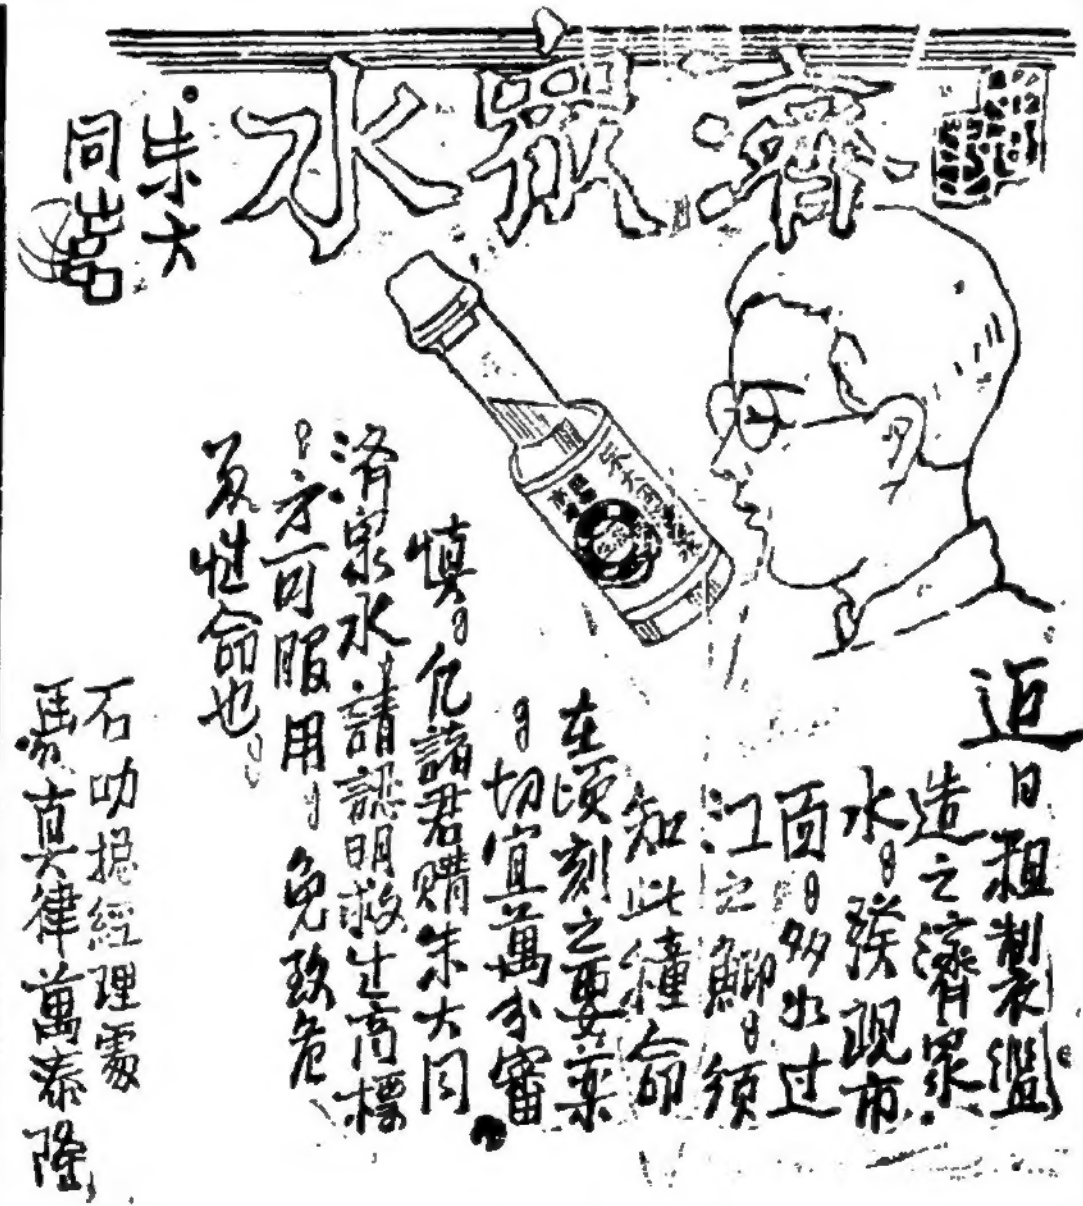 濟眾水
朱大
同
近日粗製濫
造之濟衆
水。發現市
面。多如过
江之鯽。須
知此種命
在頃刻之要藥
。切宜萬分審
慎。凡諸君購朱大同
济衆水請認明救生商標
。方可服用。免致危
及性命也。
石叻總經理處
馬真律萬泰隆